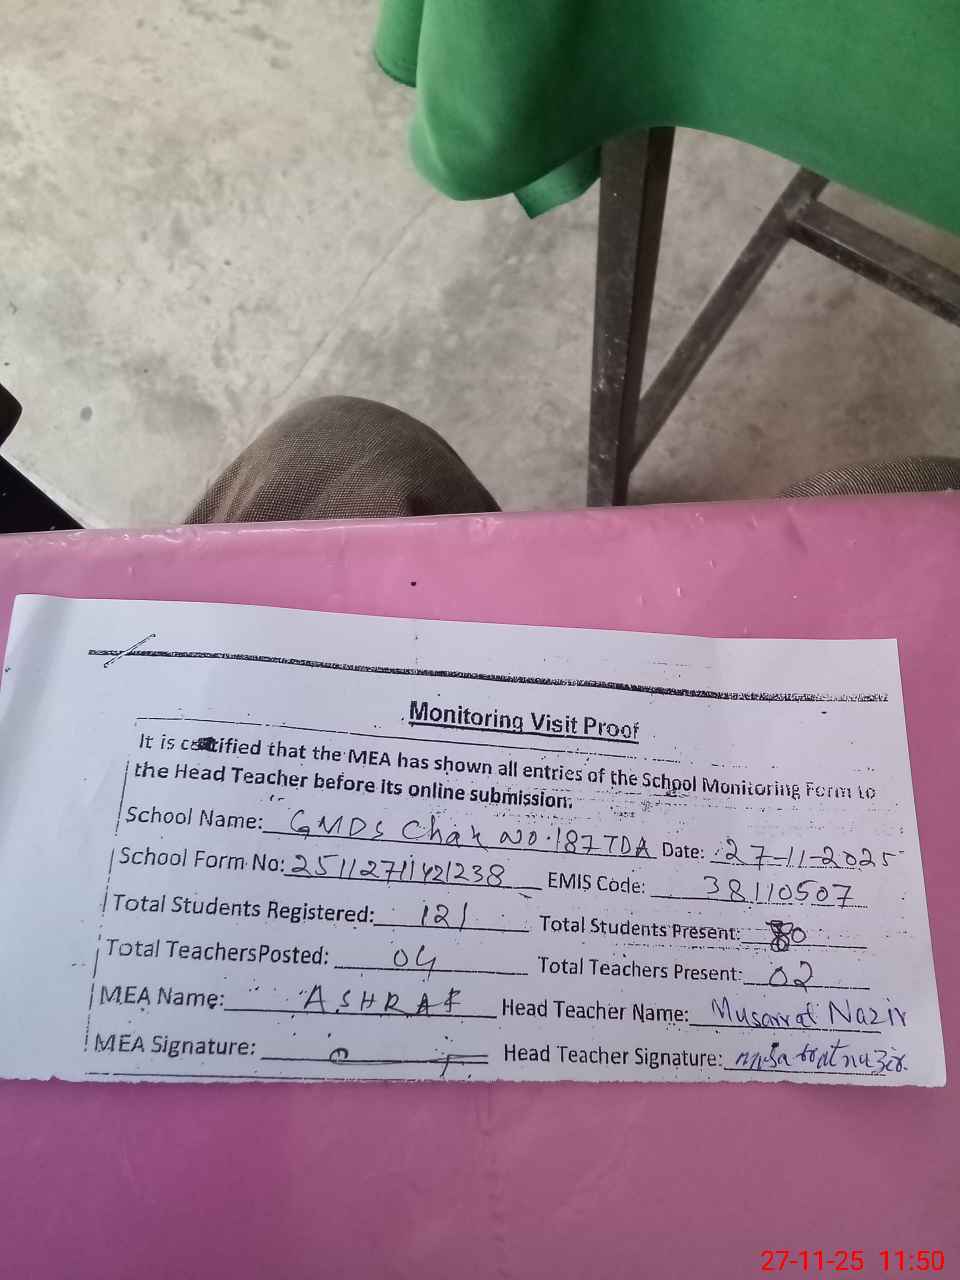 Monitoring Visit Proof
It is certified that the MEA has shown all entries of the School Monitoring Form to
the Head Teacher before its online submission.
School Name: GMDS Chak No. 187 TDA Date: 27-11-2025
School Form No: EMIS Code: 38110507
Total Students Registered: 121 Total Students Present: 80
Total TeachersPosted: 04 Total Teachers Present: 02
MEA Name: ASHRAF Head Teacher Name: Musarrat Nazir
MEA Signature: Head Teacher Signature:
27-11-25 11:50